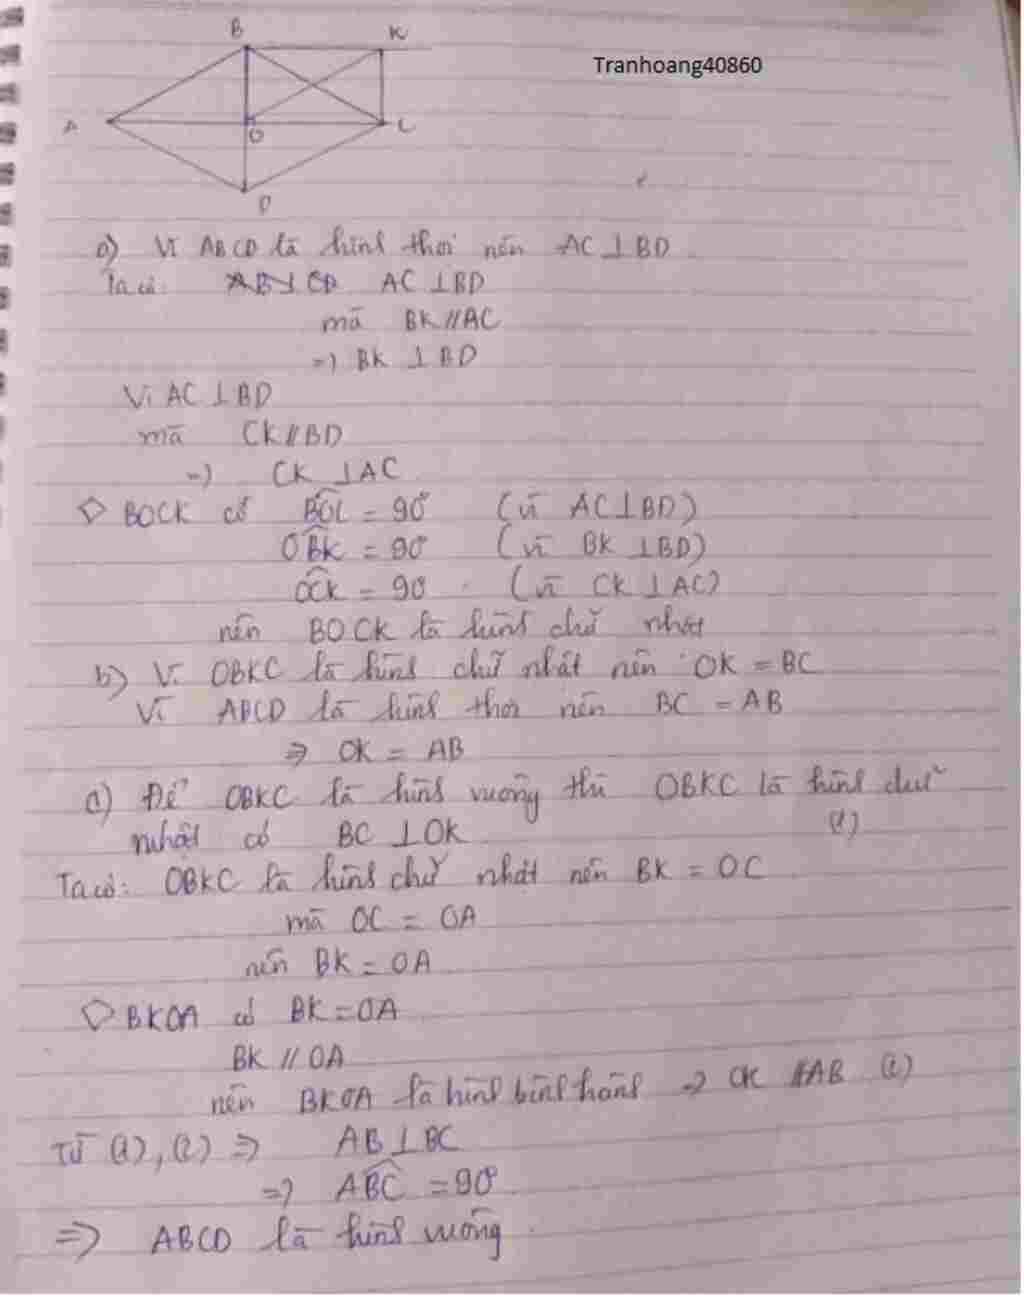 B K
Tranhoang40860
A O C
D
a) Vì ABCD là hình thoi nên AC ⊥ BD
Ta có: AB ⊥ CD AC ⊥ BD
mà BK // AC
=> BK ⊥ BD
Vì AC ⊥ BD
mà CK // BD
=> CK ⊥ AC
◇ BOCK có BOC = 90° (vì AC ⊥ BD)
OBK = 90° (vì BK ⊥ BD)
OCK = 90° (vì CK ⊥ AC)
nên BOCK là hình chữ nhật
b) Vì OBKC là hình chữ nhật nên OK = BC
Vì ABCD là hình thoi nên BC = AB
=> OK = AB
c) Để OBKC là hình vuông thì OBKC là hình chữ
nhật có BC ⊥ OK (1)
Ta có: OBKC là hình chữ nhật nên BK = OC
mà OC = OA
nên BK = OA
◇ BKOA có BK = OA
BK // OA
nên BKOA là hình bình hành => OK // AB (2)
Từ (1), (2) => AB ⊥ BC
=> ABC = 90°
=> ABCD là hình vuông